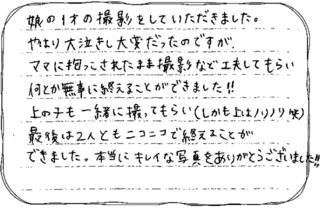 娘の1才の撮影をしていただきました。
やはり大泣きし大変だったのですが、
ママに抱っこされたまま撮影など工夫してもらい
何とか無事に終えることができました!!
上の子も一緒に撮ってもらい(しかも上はノリノリ 笑)
最後は2人ともニコニコで終えることが
できました。本当にキレイな写真をありがとうございました!!